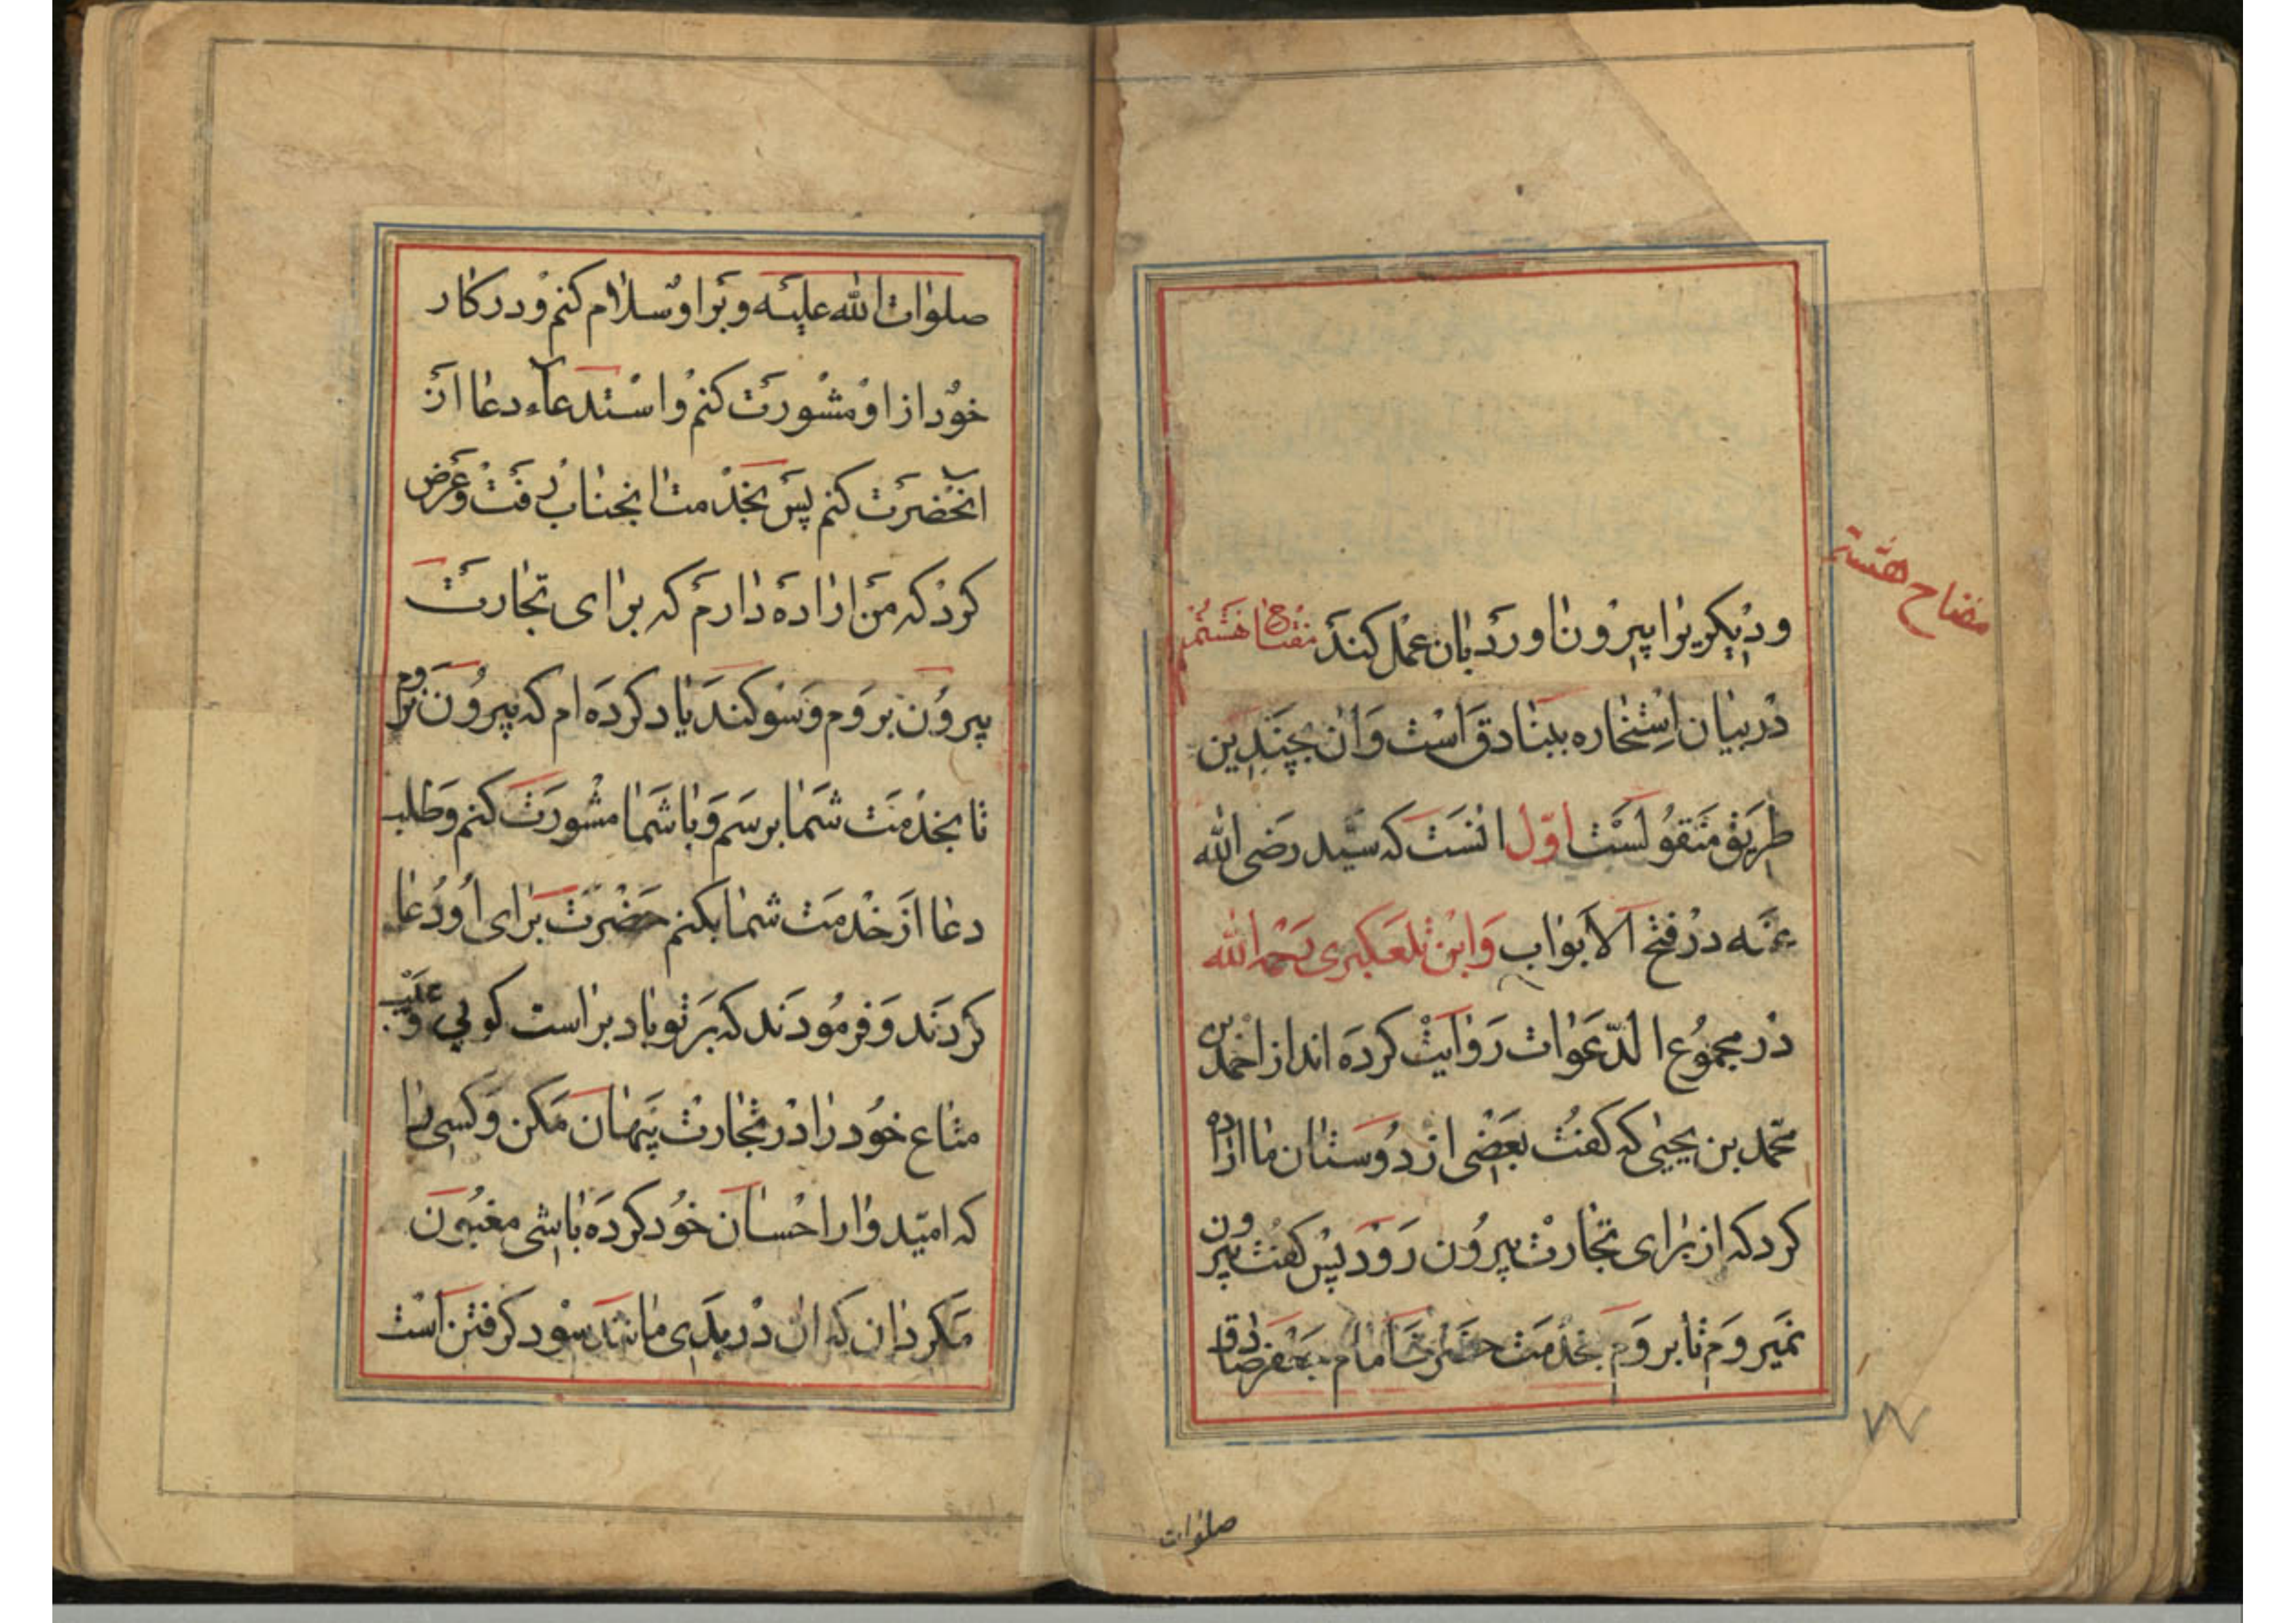 ودیکریرا پیرون اورد بان عمل کند مفتاح هشتم
مضاح هشتم
در بیان استخاره ببنادق است وان بچندین
طریق منقولست اول انست که سید رضی الله
عنه در فتح الابواب وابن تلعکبری رحمه الله
در مجموع الدعوات روایت کرده اند از احمد بن
محمد بن یحیی که کفت بعضی از دوستان ما اراده
کرد که از برای تجارت پیرون رود پس کفت پیرون
نمیروم تا بروم بخدمت حضرت امام جعفر صادق
صلوات
صلوات الله علیه و بر او سلام کنم و در کار
خود از او مشورت کنم و استدعاء دعا از
انحضرت کنم پس بخدمت انجناب رفت و عرض
کرد که من اراده دارم که برای تجارت
پیرون بروم و سوکند یاد کرده ام که پیرون نروم
تا بخدمت شما برسم و با شما مشورت کنم و طلب
دعا از خدمت شما بکنم حضرت برای او دعا
کردند و فرمودند که بر تو باد براست کویی و عیب
متاع خود را در تجارت پنهان مکن و کسی را
که امیدوار احسان خود کرده باشی مغبون
مکردان که ان در بدی مانند سود کرفتن است